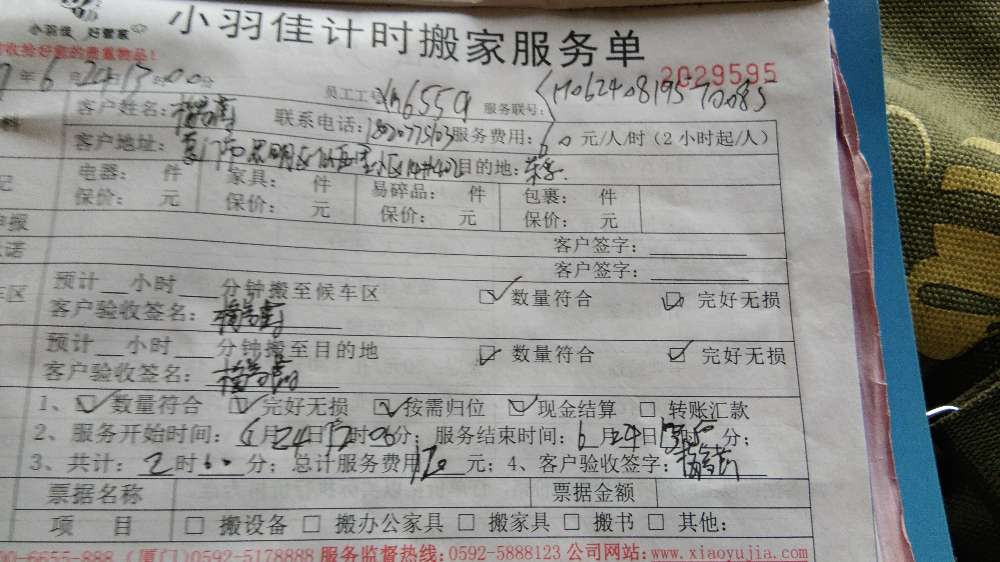 小羽佳 好管家
小羽佳计时搬家服务单
收给好您的贵重物品!
2029595
年6月24日13时00分 员工工号 xm6559 服务联号: 1706240819570085
客户姓名: 联系电话: 服务费用: 60 元/人/时(2小时起/人)
客户地址: 厦门市思明区 目的地:
电器: 件 家具: 件 易碎品: 件 包裹: 件
保价: 元 保价: 元 保价: 元 保价: 元
客户签字:
客户签字:
预计 小时 分钟搬至候车区 数量符合 完好无损
车区
客户验收签名:
预计 小时 分钟搬至目的地 数量符合 完好无损
客户验收签名:
1、 数量符合 完好无损 按需归位 现金结算 转账汇款
2、服务开始时间: 6月24日 时 分; 服务结束时间: 6月24日 时 分;
3、共计: 2时60分; 总计服务费用 120 元; 4、客户验收签字:
票据名称 票据金额
项 目 搬设备 搬办公家具 搬家具 搬书 其他:
00-6655-888 (厦门)0592-5178888 服务监督热线:0592-5888123 公司网站:www.xiaoyujia.com